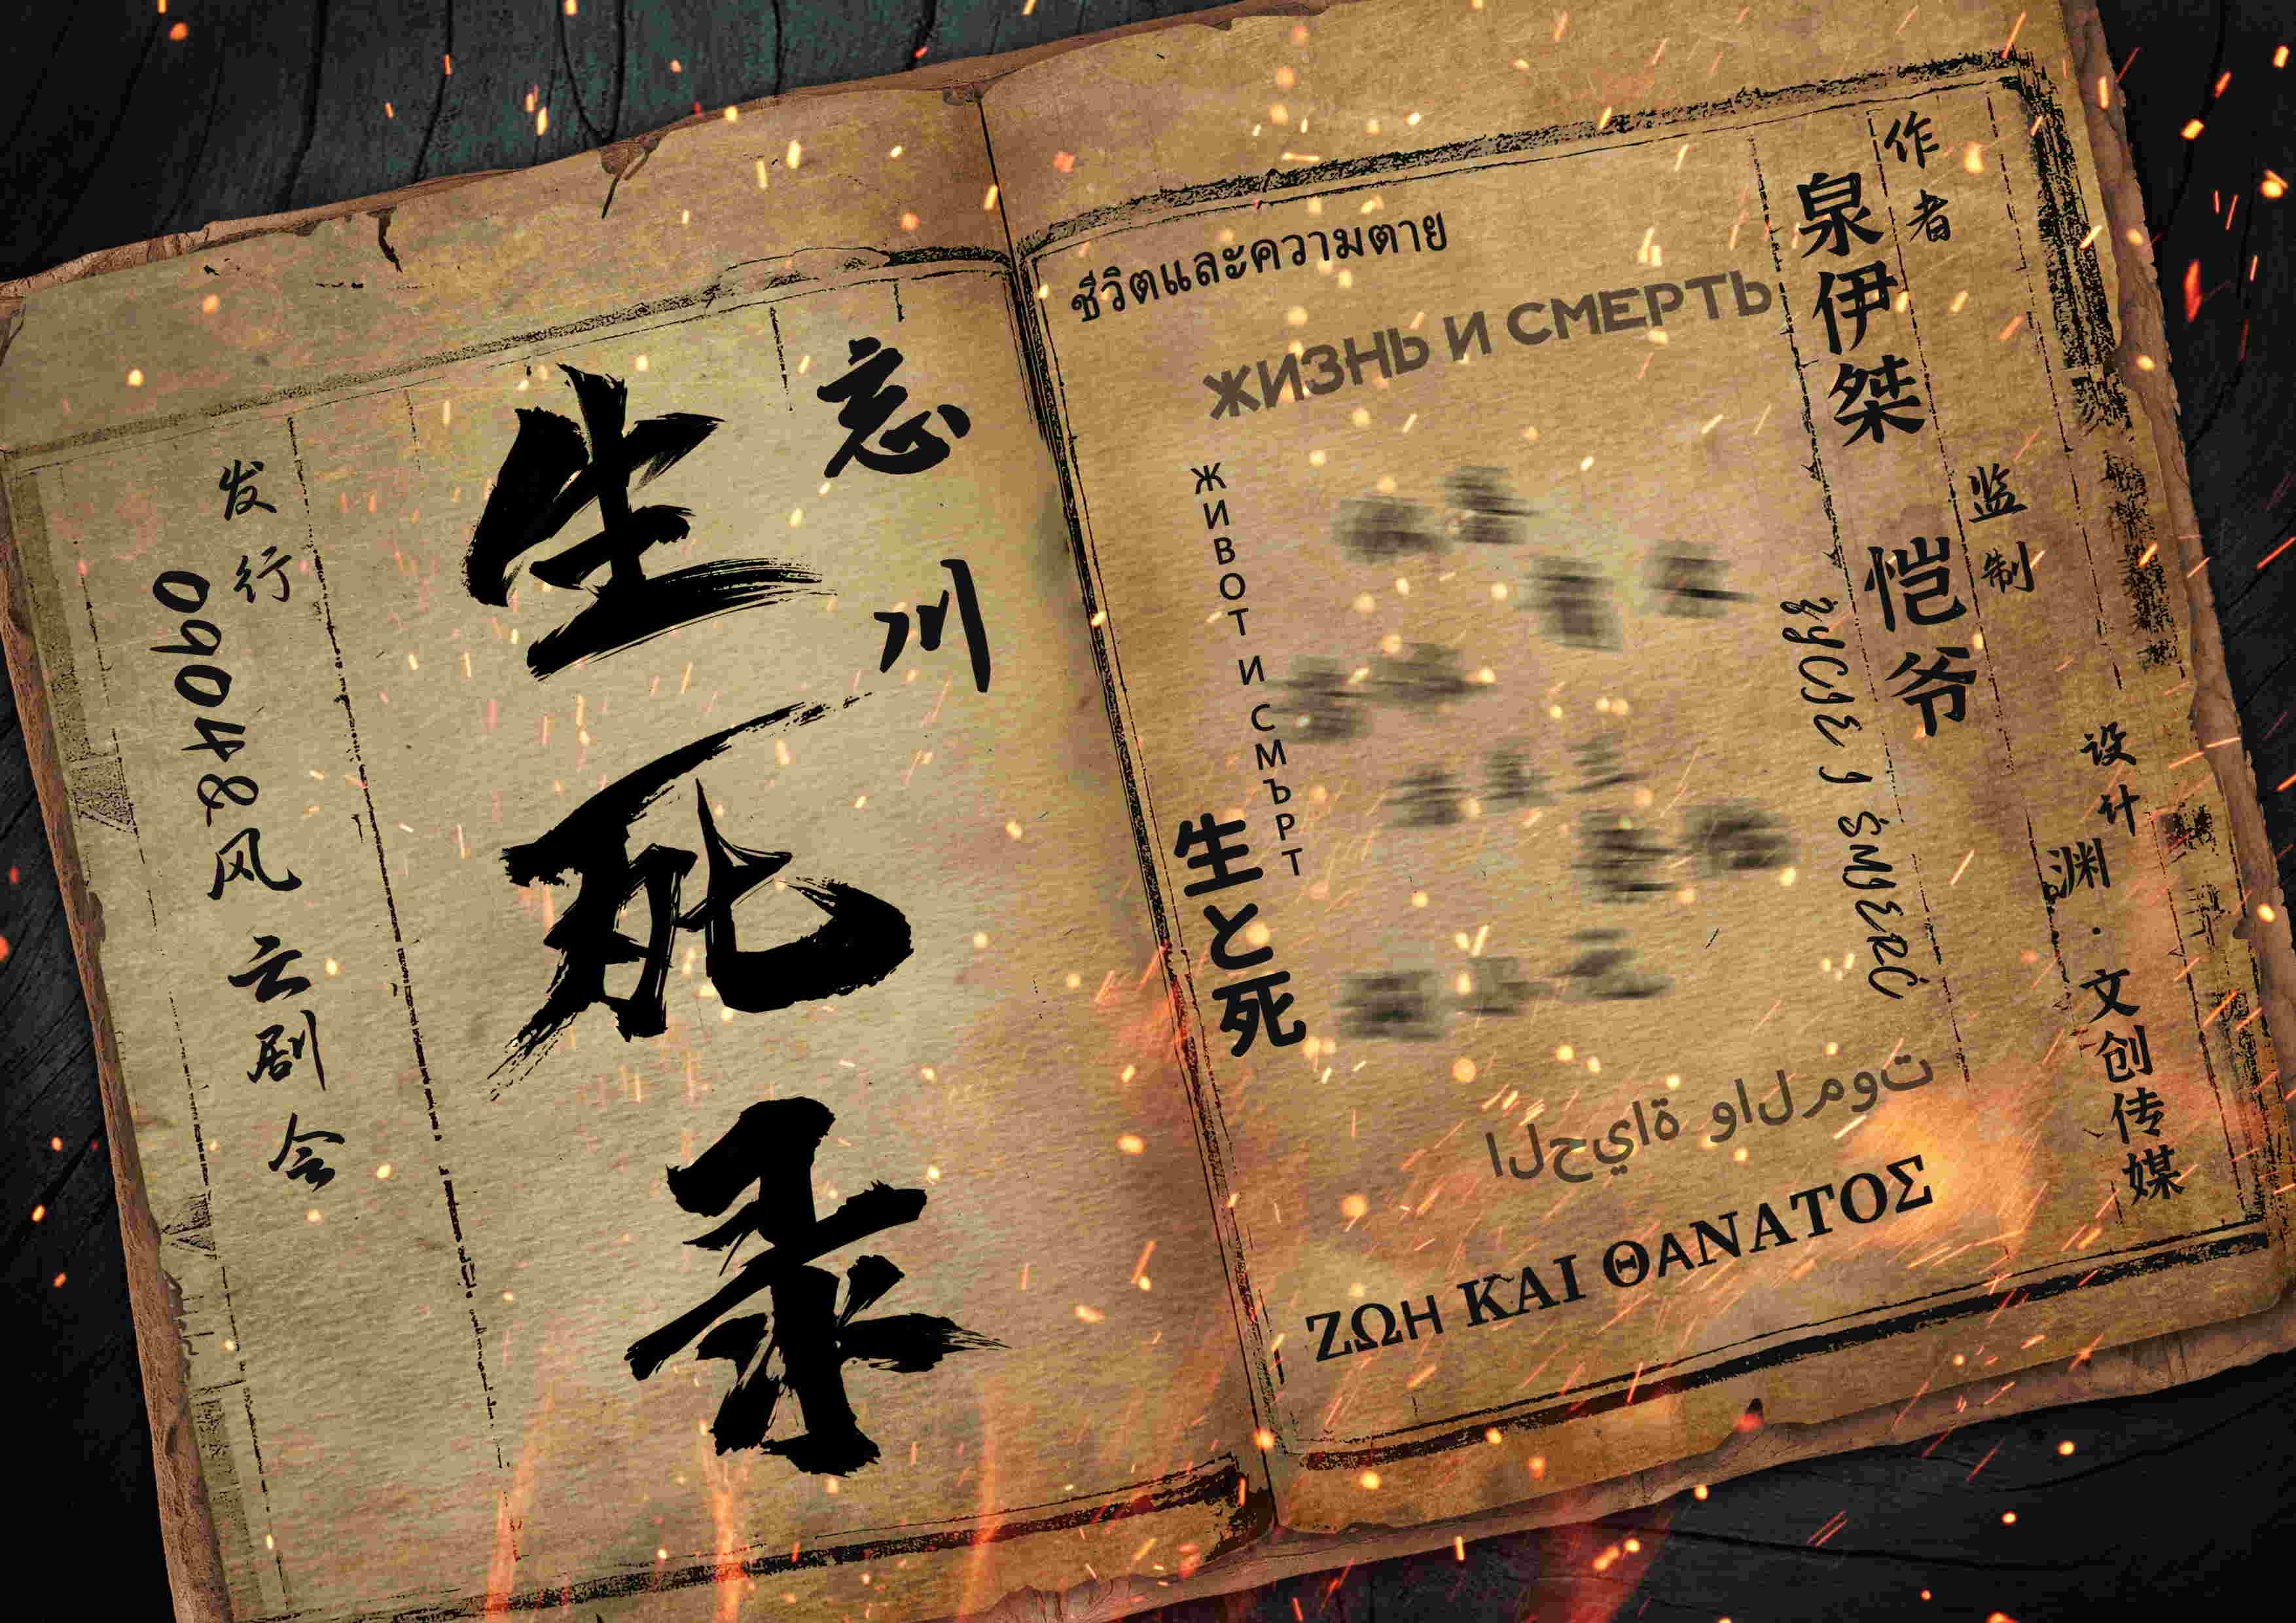 忘川
生死录
发行
0904&风云剧会
作者
泉伊桀
监制
恺爷
设计
渊·文创传媒
ชีวิตและความตาย
ЖИЗНЬ И СМЕРТЬ
ЖИВОТ И СМЪРТ
生と死
ŻYCIE I ŚMIERĆ
الحياة والموت
ΖΩΗ ΚΑΙ ΘΑΝΑΤΟΣ